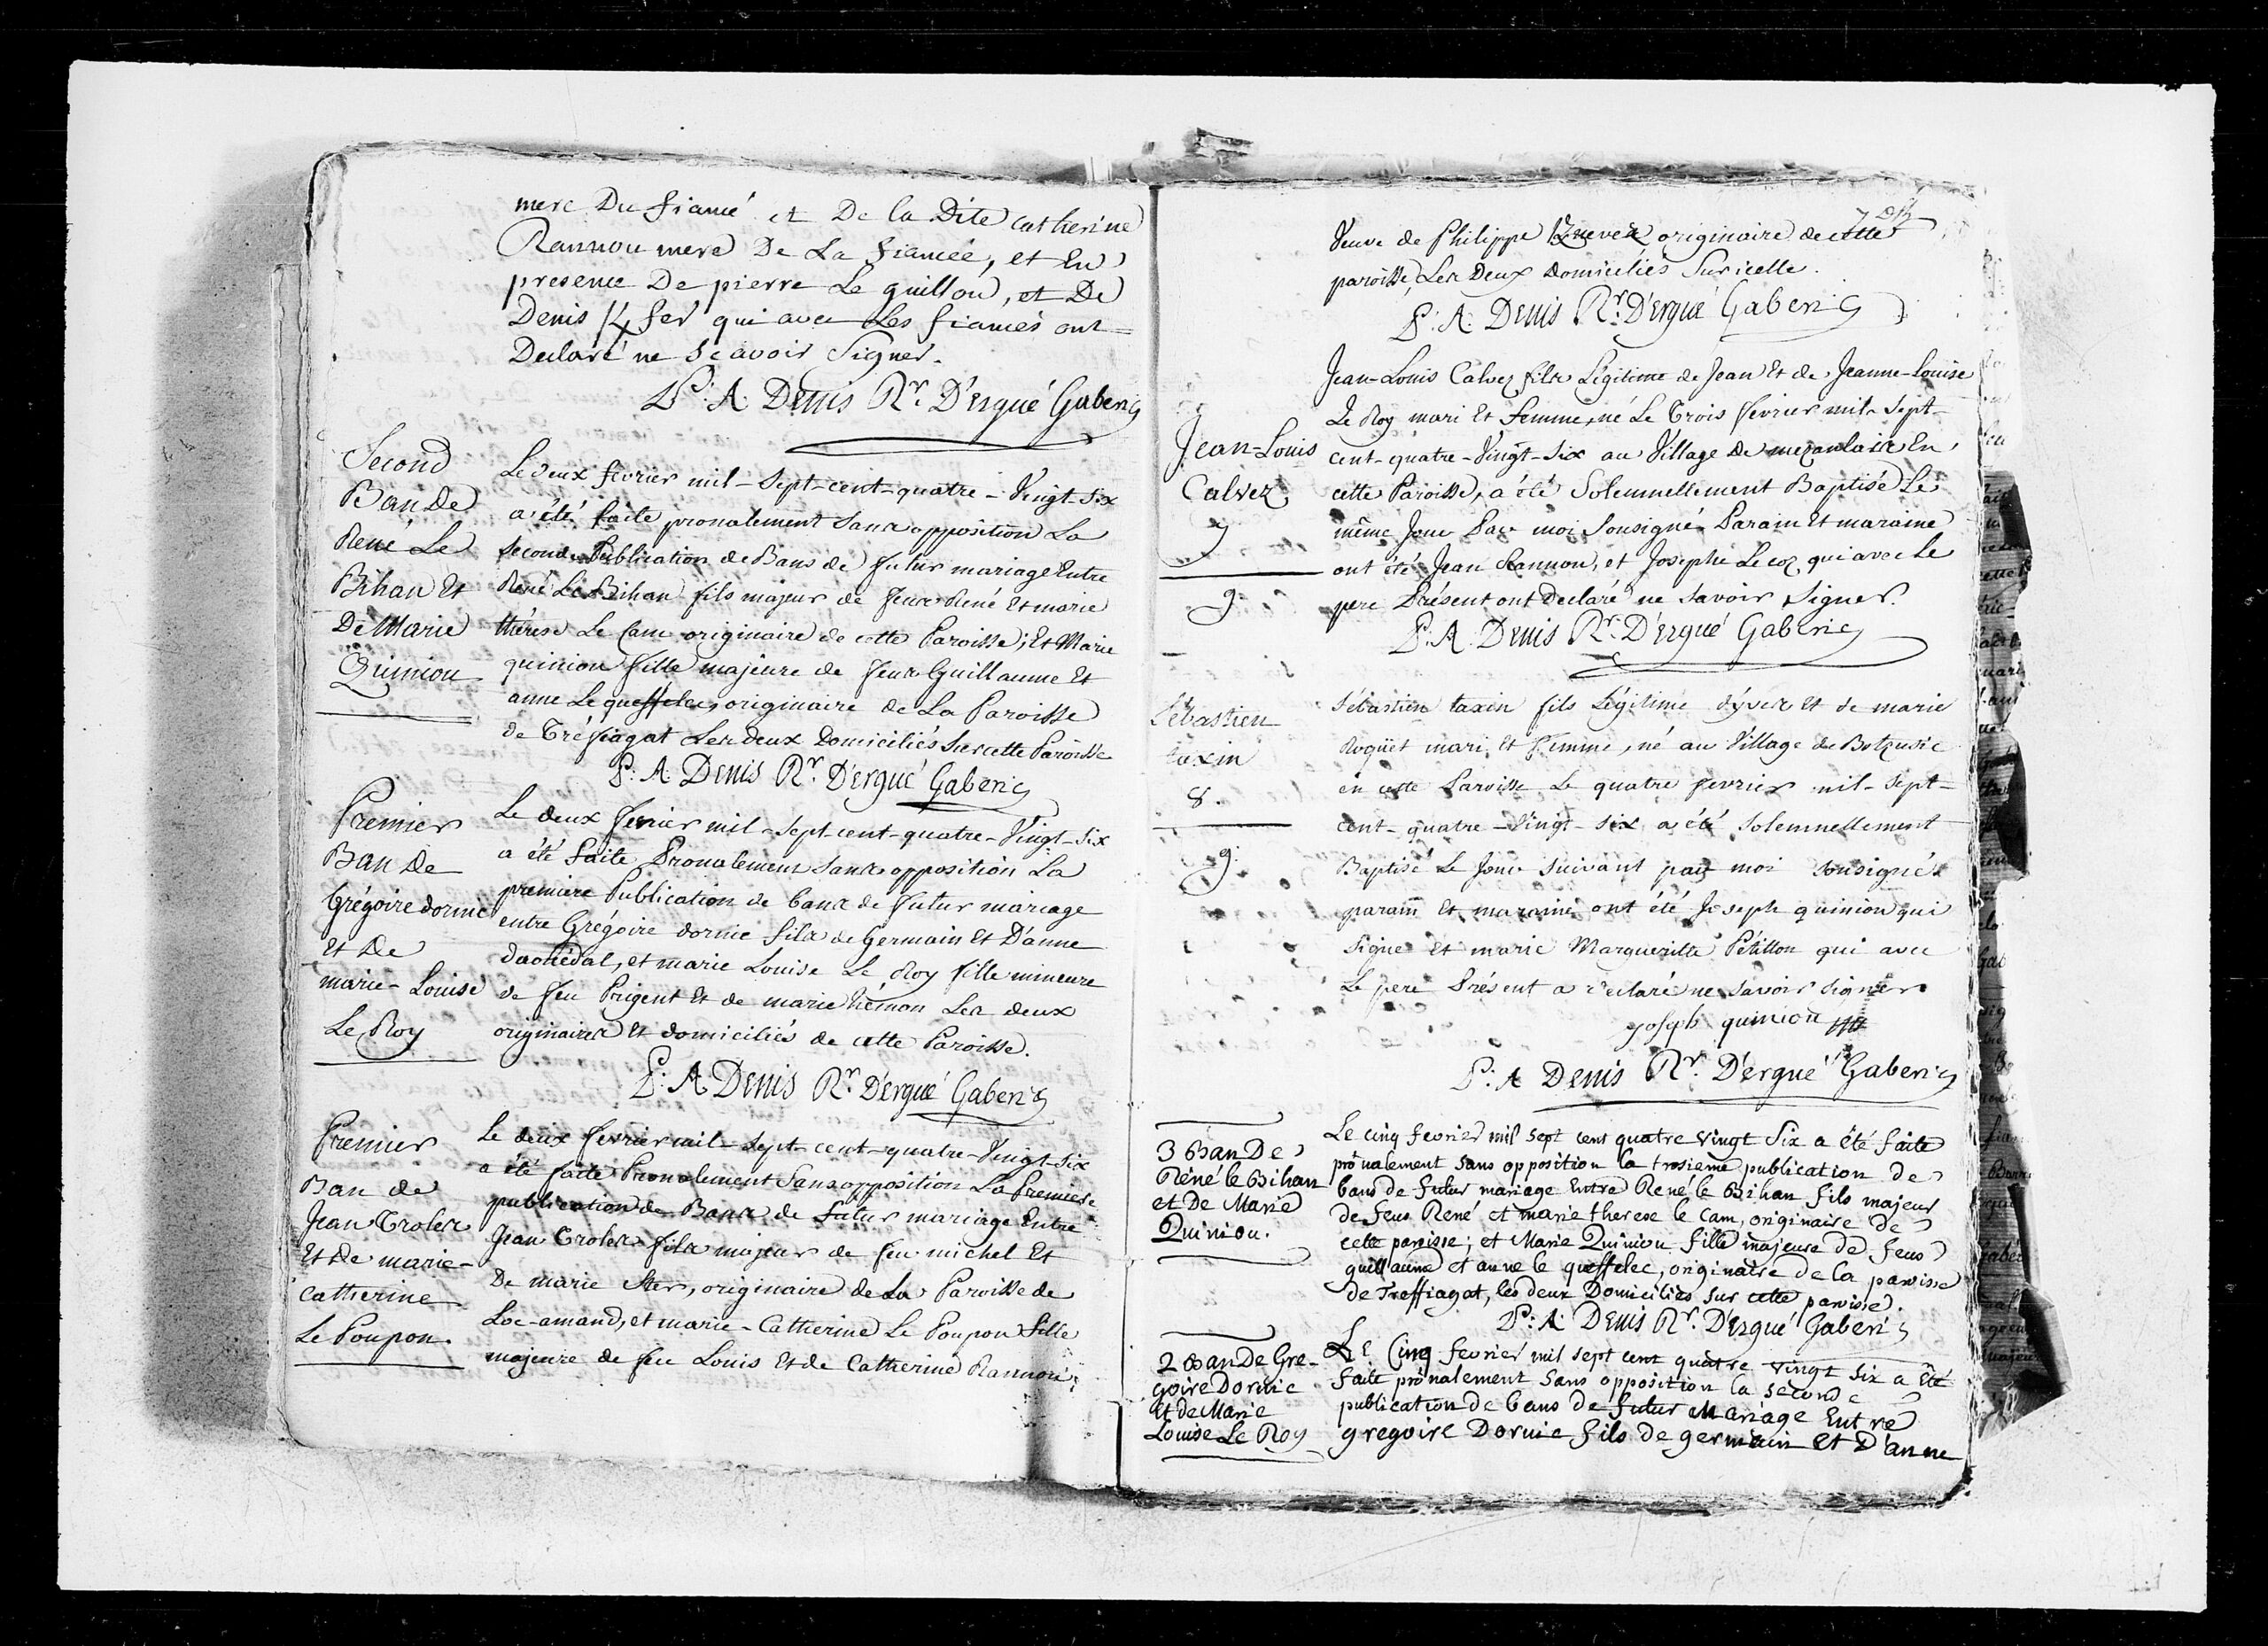 mere Du fiancé et De la Dite catherine
Rannou mere De La fiancée, et En
presence De pierre Le guillou, et De
Denis qui avec Les fiancés ont
Declaré ne scavoir Signer.
P: A: Denis Rr. D'ergué Gaberic
Second
Ban De
René Le
Bihan Et
De Marie
Quiniou
Le deux fevrier mil-sept-cent-quatre-Vingt-Six
a été faite pronalement Sans opposition La
seconde Publication de Bans de futur mariage Entre
René Le Bihan fils majeur de feux René Et marie
thérese Le Cam originaire de cette Paroisse; Et Marie
quiniou fille majeure de feux Guillaume Et
anne Le queffelec, originaire de La Paroisse
de Tréffiagat Les deux Domiciliés Sur cette Paroisse
P: A: Denis Rr. D'ergué Gaberic
Premier
Ban De
Grégoire dornic
Et De
marie-Louise
Le Roy
Le deux fevrier mil-sept-cent-quatre-Vingt-Six
a été faite Pronalement Sans opposition La
premiere Publication de bans de futur mariage
entre Grégoire dornic fils de Germain Et D'anne
daoüédal, et marie Louise Le Roy fille mineure
de feu Prigent Et de marie hémon Les deux
originaires Et domiciliés de cette Paroisse.
P: A Denis Rr. D'ergué Gaberic
Premier
Ban de
Jean Troles
Et de marie-
Catherine
Le Poupon.
Le deux fevrier mil-sept-cent-quatre-Vingt-Six
a été faite Pronalement Sans opposition La Premiere
publication de Bans de futur mariage Entre
Jean Troles fils majeur de feu michel Et
De marie Ster, originaire de La Paroisse de
Loc-amand, et marie-Catherine Le Poupon fille
majeure de feu Louis Et de Catherine Rannou;
Veuve de Philippe originaire de cette
paroisse, Les Deux Domiciliés Sur icelle.
P: A: Denis Rr. D'ergué Gaberic
Jean-Louis
Calvez
7
g
Jean-Louis Calvez fils Légitime de Jean Et de Jeanne-Louise
Le Roy mari Et femme, né Le Trois fevrier mil-sept-
cent-quatre-Vingt-six au Village de mezanlair En
cette Paroisse, a été Solemnellement Baptisé Le
même Jour Par moi Sousigné Parain Et maraine
ont été Jean Rannou, et Josephe Le coz qui avec Le
pere Présent ont Declaré ne Savoir Signer.
P: A. Denis Rr. D'ergué Gaberic
Sébastien
taxin
8.
g.
Sébastien taxin fils Légitime d'yves Et de marie
Roguët mari Et femme, né au Village de Botzusic
en cette Paroisse Le quatre fevrier mil-sept-
cent-quatre-Vingt-six a été Solemnellement
Baptisé Le Jour Suivant par moi Sousigné
parain Et maraine ont été Joseph quiniou qui
Signe Et marie Margueritte Pétillon qui avec
Le pere Présent a déclaré ne savoir signer
joseph quiniou
P: A Denis Rr. D'ergué Gaberic
3 Ban De
Réné le Bihan
et De Marie
Quiniou.
Le cinq fevrier mil sept cent quatre vingt Six a été faite
prônalement Sans opposition la troisieme publication de
bans de futur mariage Entre René le Bihan fils majeur
de feus René et marie therese le Cam, originaire de
cette paroisse; et Marie Quiniou fille majeure de feus
guillaume et anne le queffelec, originaire de la paroisse
de Treffiagat, les deux Domiciliés Sur cette paroisse.
P: A: Denis Rr. D'ergué Gaberic
2 Ban De Gre-
goire Dornic
Et de Marie
Louise Le Roy
Le Cinq fevrier mil sept cent quatre vingt Six a été
faite prônalement Sans opposition la seconde
publication de bans de futur Mariage Entre
gregoire Dornic fils de germain Et D'anne